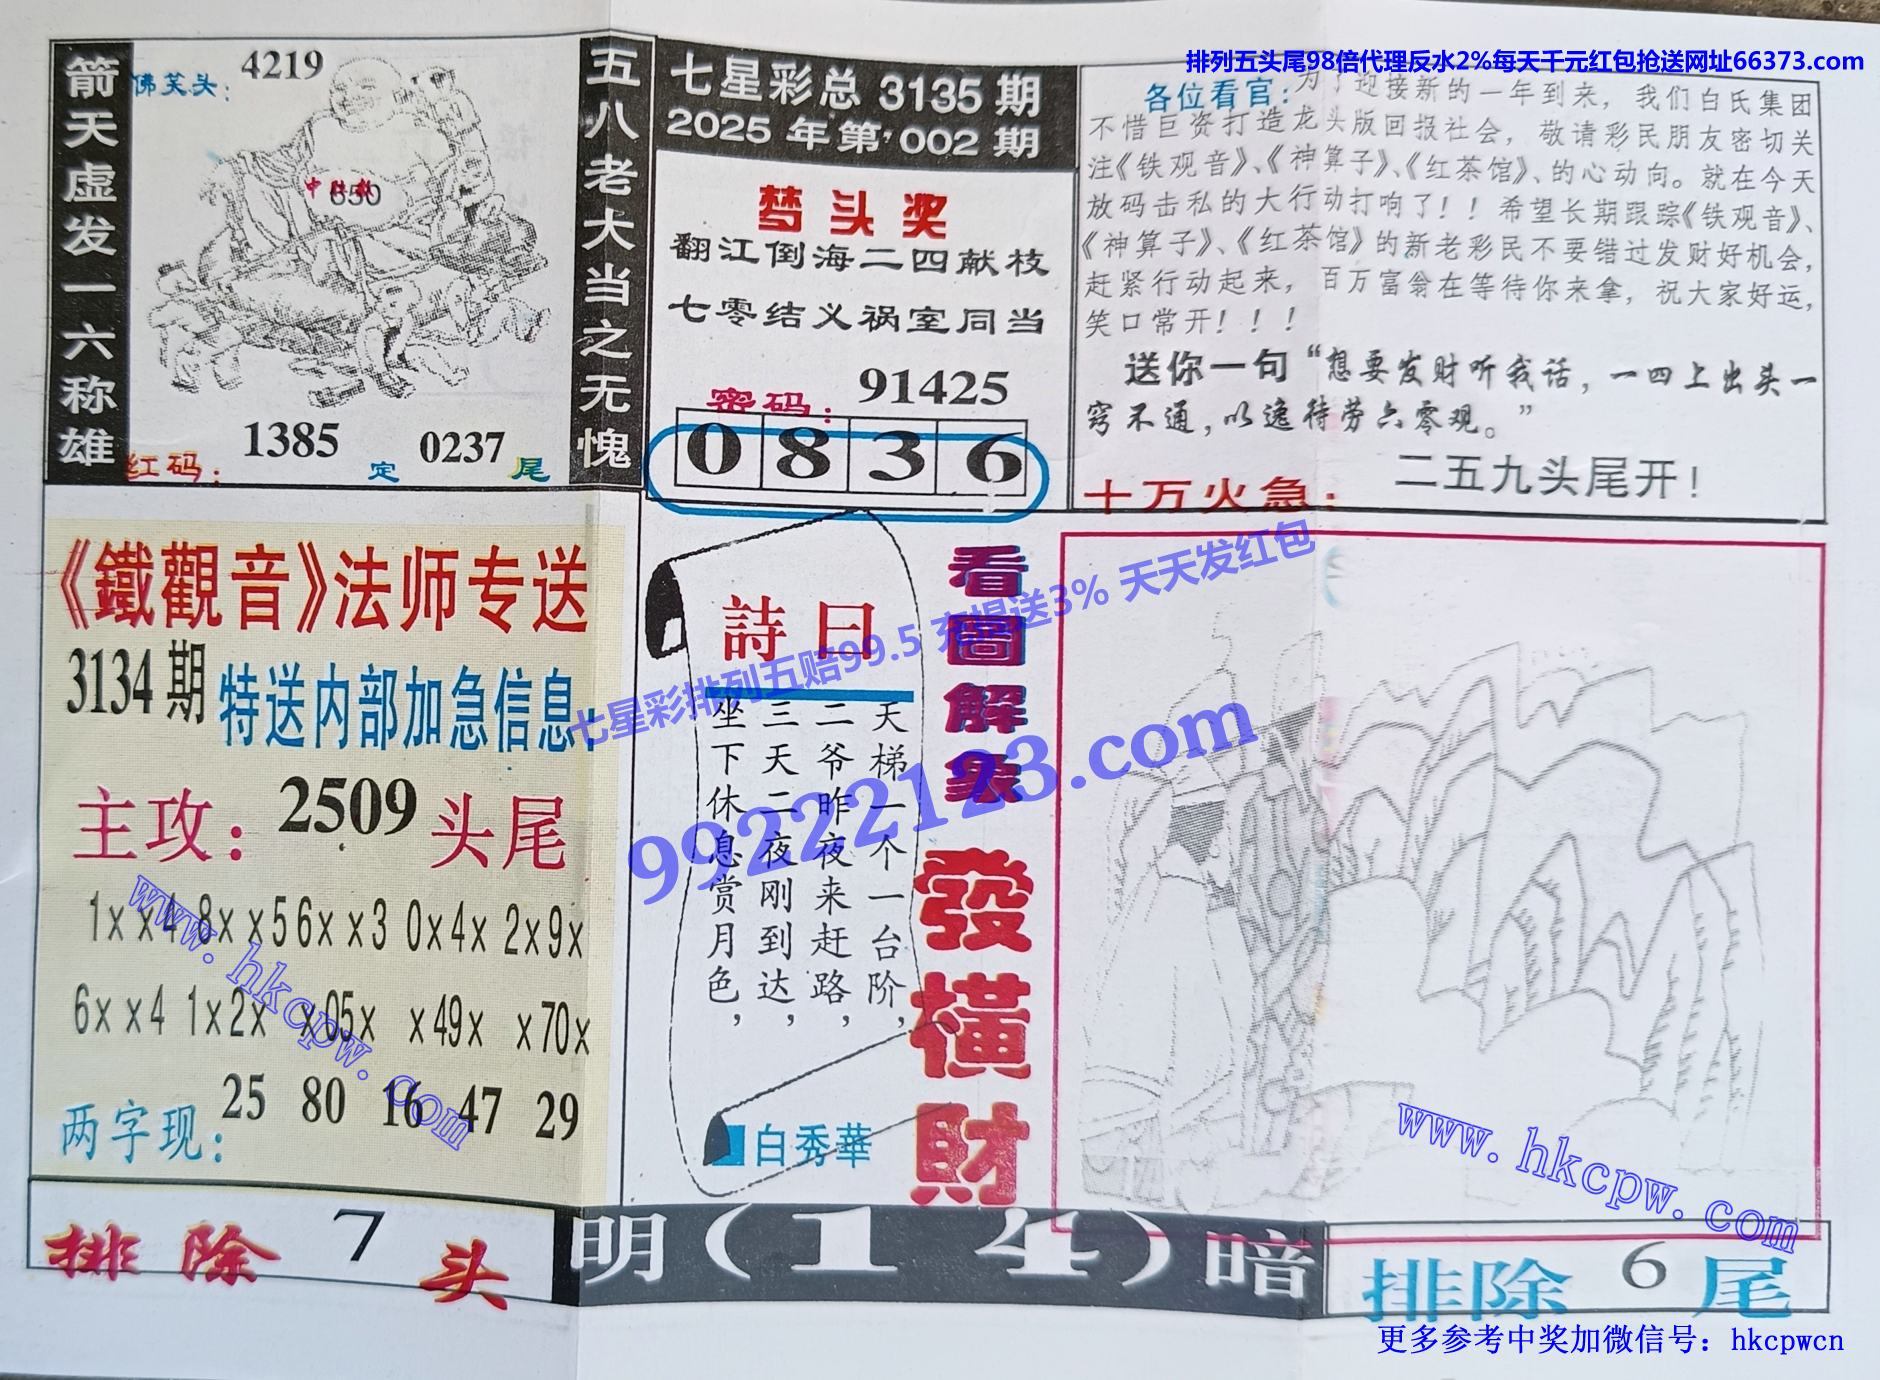 排列五头尾98倍代理反水2%每天千元红包抢送网址66373.com
箭天虚发一六称雄
佛笑头：
4219
650
红码：
1385
定
0237
尾
五八老大当之无愧
七星彩总 3135 期
2025 年第 002 期
梦头奖
翻江倒海二四献枝
七零结义祸室同当
密码：
91425
0 8 3 6
各位看官：
为了迎接新的一年到来，我们白氏集团
不惜巨资打造龙头版回报社会，敬请彩民朋友密切关
注《铁观音》、《神算子》、《红茶馆》、的心动向。就在今天
放码击私的大行动打响了！！希望长期跟踪《铁观音》、
《神算子》、《红茶馆》的新老彩民不要错过发财好机会，
赶紧行动起来，百万富翁在等待你来拿，祝大家好运，
笑口常开！！！
送你一句“想要发财听我话，一四上出头一
窍不通，以逸待劳六零观。”
十万火急：
二五九头尾开！
《鐵觀音》法师专送
3134 期
特送内部加急信息：
主攻：
2509
头尾
1××4 8××5 6××3 0×4× 2×9×
6××4 1×2× ×05× ×49× ×70×
两字现：
25 80 16 47 29
詩曰
天梯一个一台阶，
二爷昨夜来赶路，
三天二夜刚到达，
坐下休息赏月色，
白秀華
看圖解象
發横財
七星彩排列五赔99.5 充提送3% 天天发红包
99222123.com
www.hkcpw.com
www.hkcpw.com
排除 7 头
明(1 4)暗
排除 6 尾
更多参考中奖加微信号：hkcpwcn